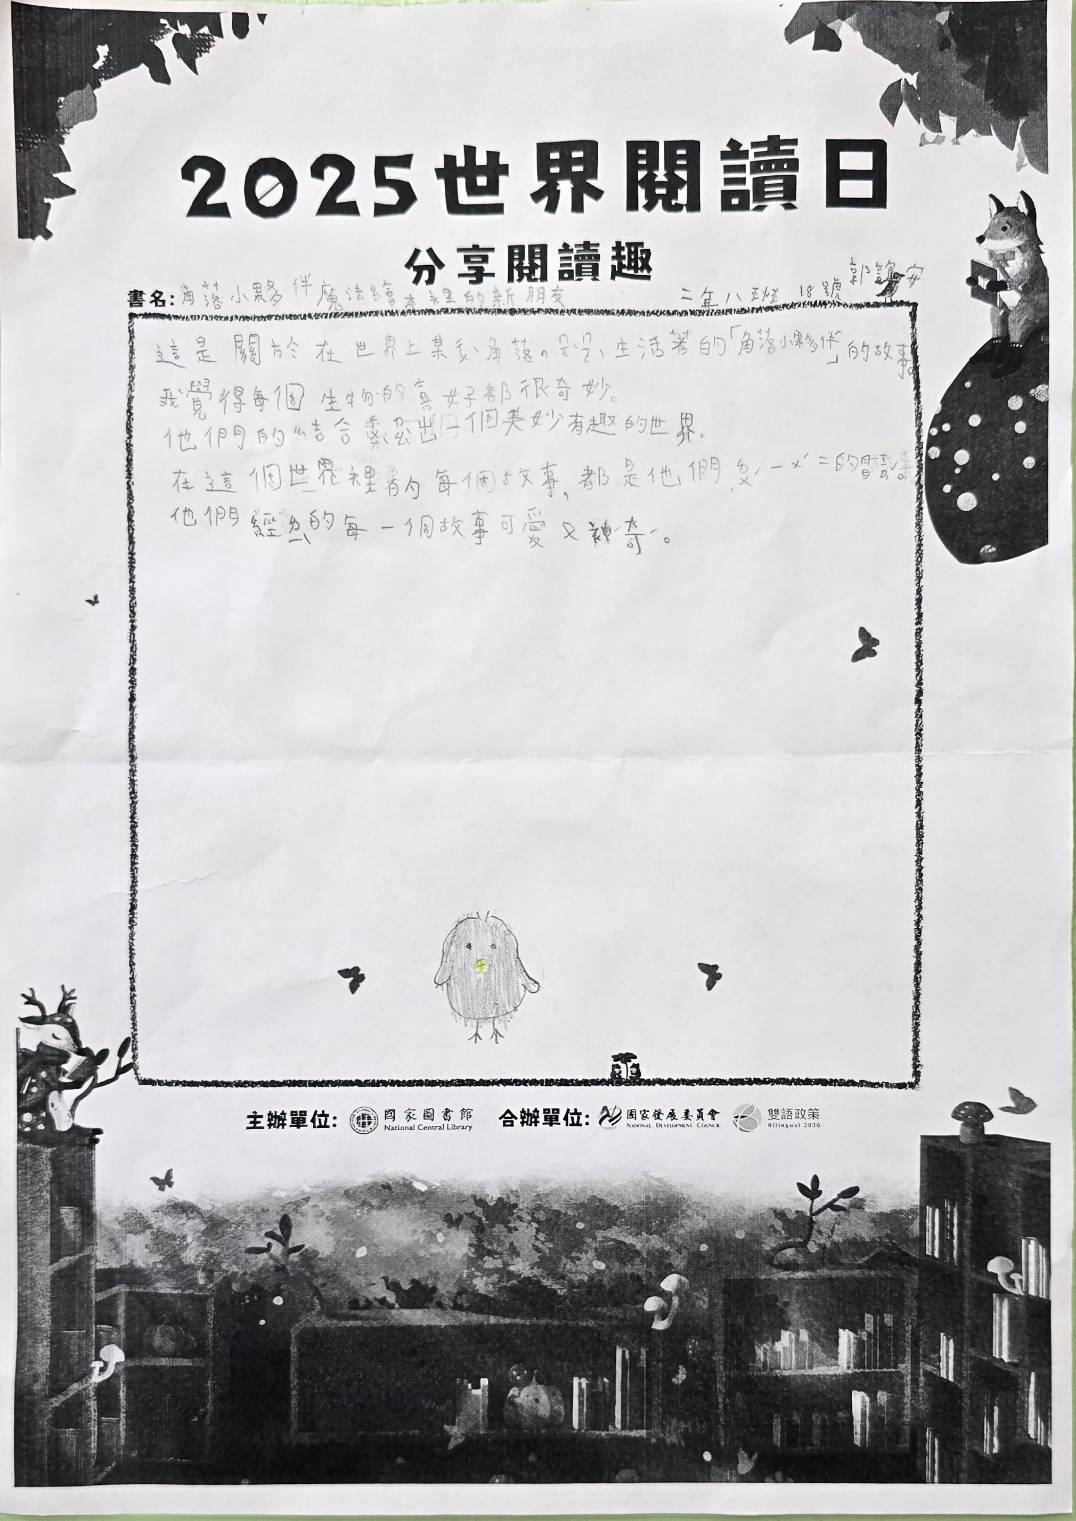 2025世界閱讀日
分享閱讀趣
書名:角落小夥伴魔法繪本裡的新朋友 二年八班 18號 郭 安
這是關於在世界上某個角落,生活著的「角落小夥伴」的故事。
我覺得每個生物的喜好都很奇妙。
他們的結合 出一個美妙有趣的世界。
在這個世界裡的每個故事,都是他們 的冒
他們經 的每一個故事可愛又神奇。
主辦單位: 國家圖書館 National Central Library 合辦單位: 國家發展委員會 National Development Council 雙語政策 Bilingual 2030